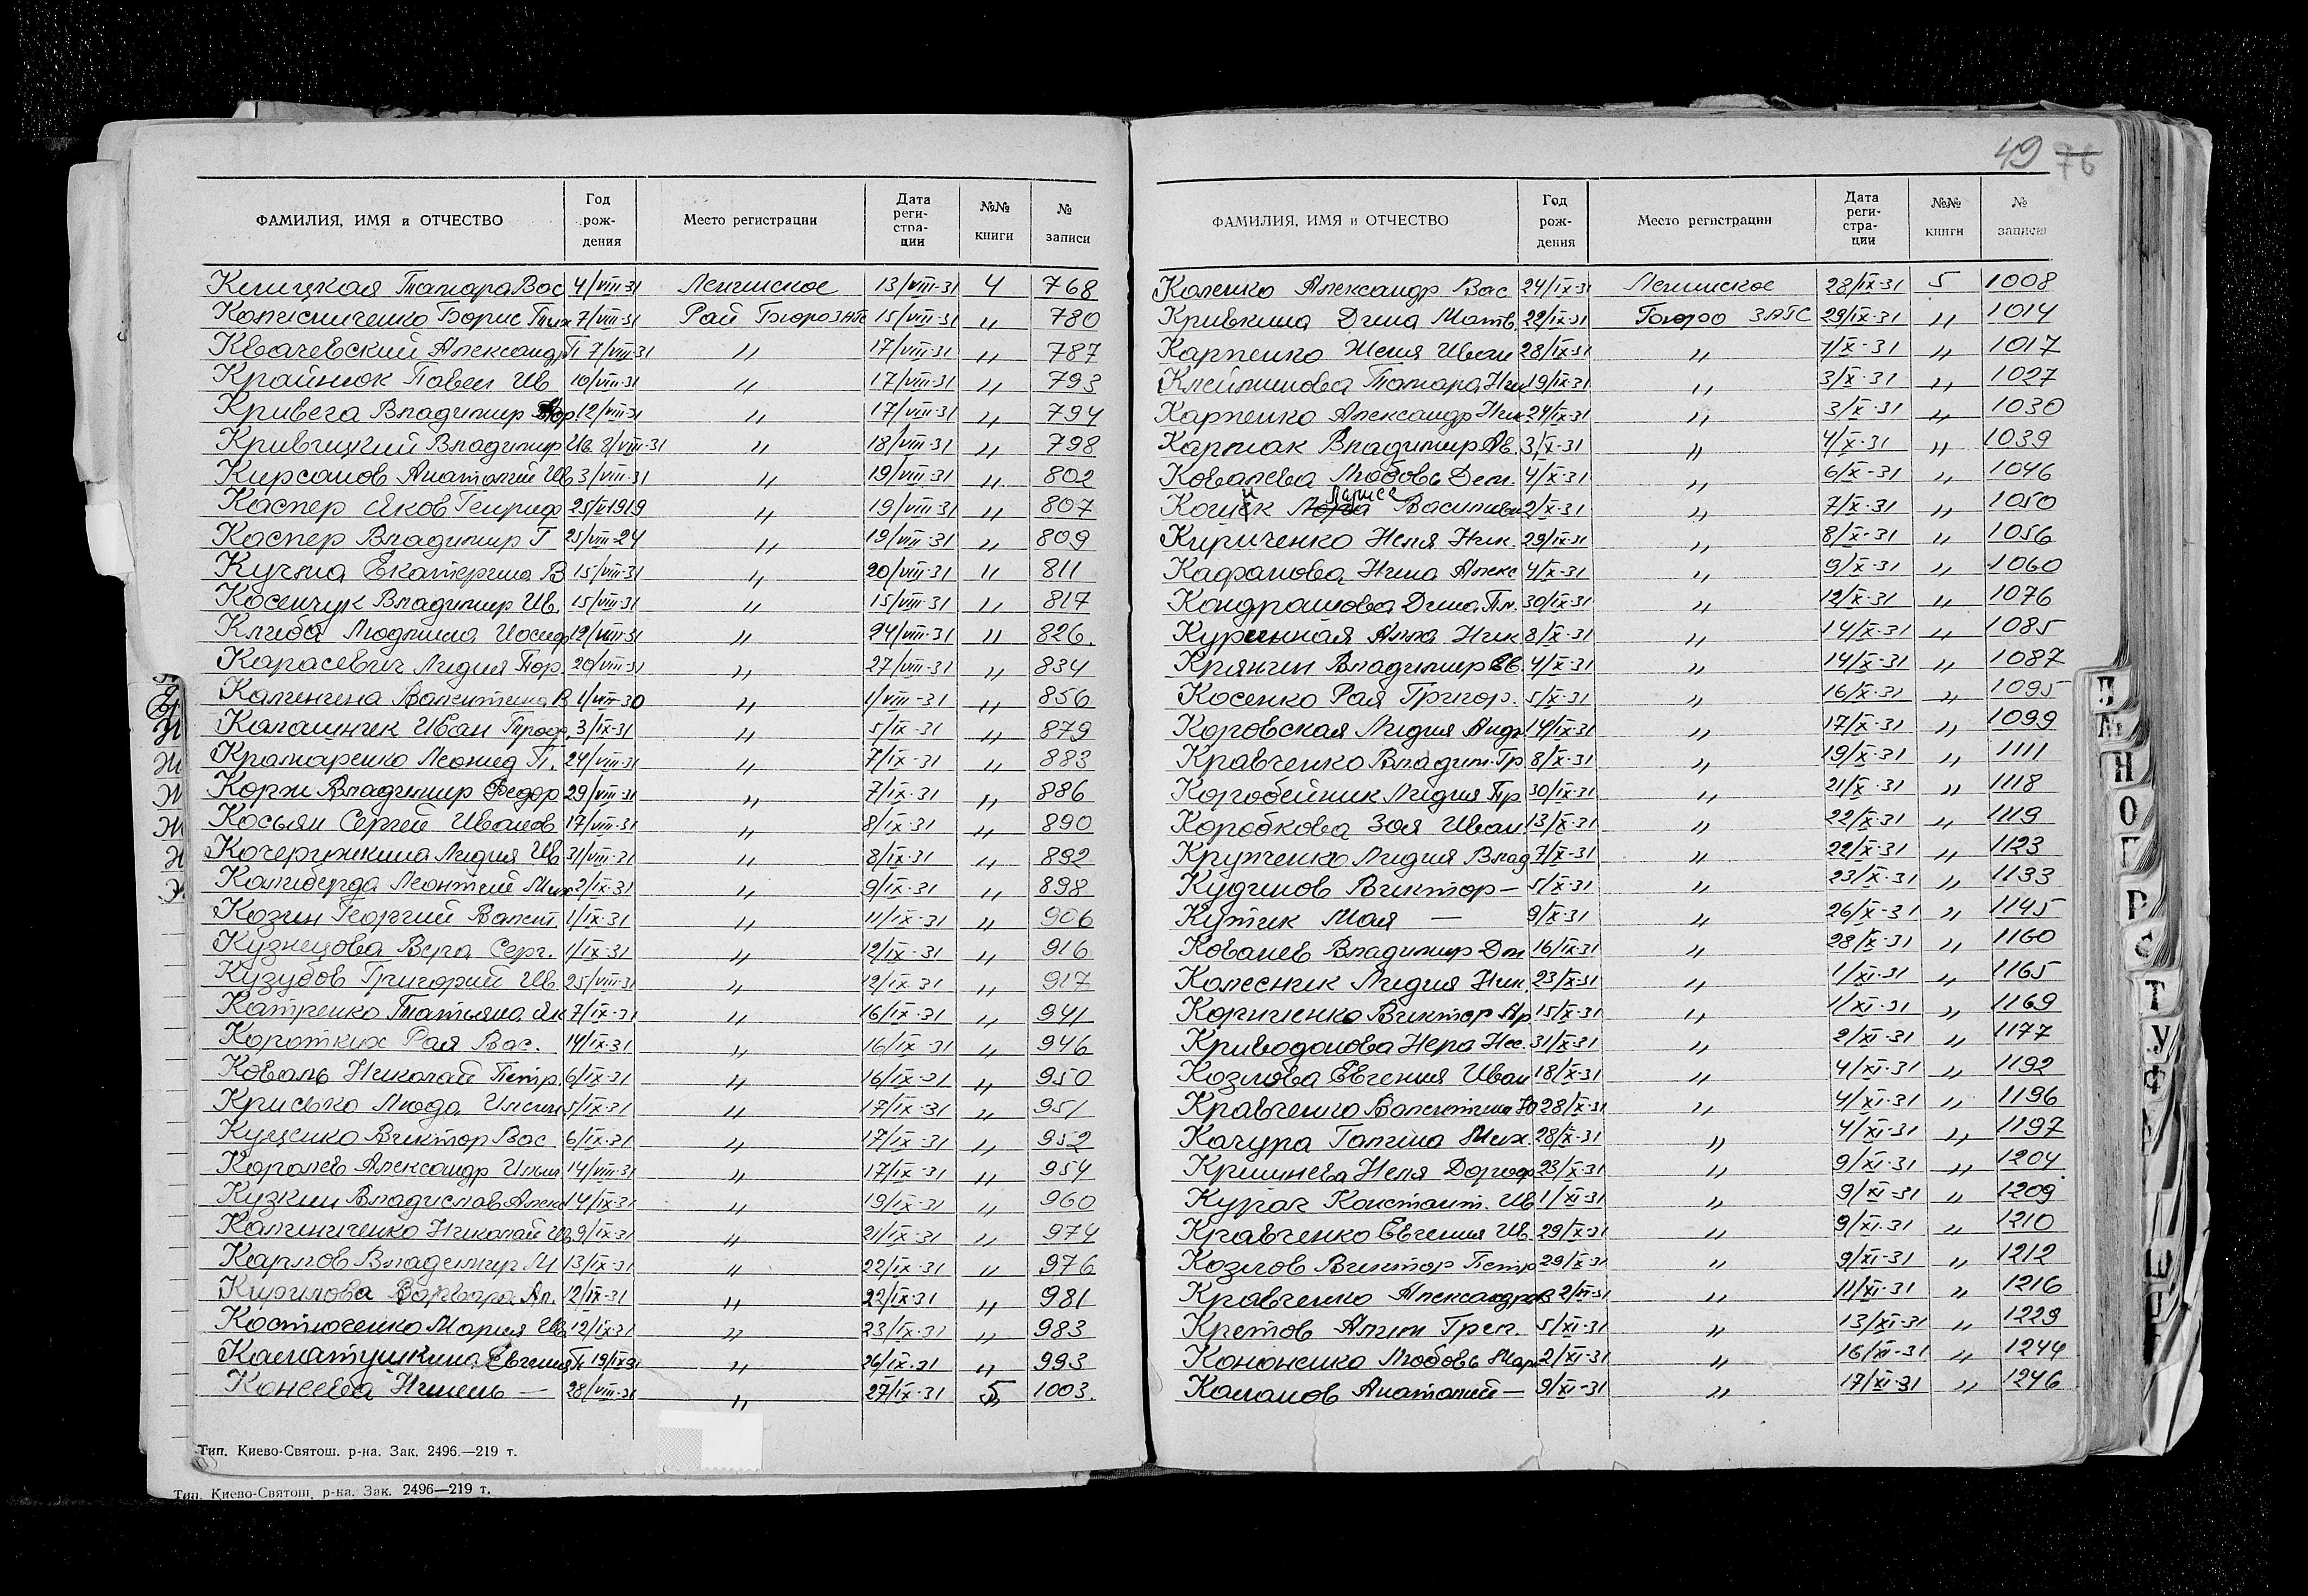 49 76
ФАМИЛИЯ, ИМЯ и ОТЧЕСТВО Год рож- дения Место регистрации Дата реги- стра- ции №№ книги № записи
Клицкая Тамара Вас 4/VIII-31 Ленинское 13/VIII-31 4 768
Колесниченко Борис 7/VIII-31 Рай Бюро ЗАГС 15/VIII-31 〃 780
Квачевский Александр П 7/VIII-31 〃 17/VIII-31 〃 787
Крайнюк Павел Ив 10/VIII-31 〃 17/VIII-31 〃 793
Кривега Владимир 12/VIII-31 〃 17/VIII-31 〃 794
Кривицкий Владимир Ив. 8/VIII-31 〃 18/VIII-31 〃 798
Кирсанов Анатолий Ив 3/VIII-31 〃 19/VIII-31 〃 802
Каспер Яков Генрих 25/ 1919 〃 19/VIII-31 〃 807
Каспер Владимир Г 25/VIII-24 〃 19/VIII-31 〃 809
Кучма Екатерина В 15/VIII-31 〃 20/VIII-31 〃 811
Косенчук Владимир Ив. 15/VIII-31 〃 15/VIII-31 〃 817
Клиба Людмила Иосиф 12/VIII-31 〃 24/VIII-31 〃 826.
Карасевич Лидия Пор. 20/VIII-31 〃 27/VIII-31 〃 834
Калинина Валентина В 1/VIII-30 〃 1/VIII-31 〃 856
Калашник Иван Проф. 3/IX-31 〃 5/IX-31 〃 879
Крамаренко Леонид П. 24/VIII-31 〃 7/IX-31 〃 883
Корж Владимир Федор 29/VIII-31 〃 7/IX-31 〃 886
Косьян Сергей Иванов 17/VIII-31 〃 8/IX-31 〃 890
Кочержкина Лидия Ив 31/VIII-31 〃 8/IX-31 〃 892
Калиберда Леонтий Мих 2/IX-31 〃 9/IX-31 〃 898
Козин Георгий Валент. 1/IX-31 〃 11/IX-31 〃 906
Кузнецова Вера Серг. 1/IX-31 〃 12/IX-31 〃 916
Кузубов Григорий Ив. 25/VIII-31 〃 12/IX-31 〃 917
Катренко Татьяна Як 7/IX-31 〃 16/IX-31 〃 941
Коротких Рая Вас. 14/IX-31 〃 16/IX-31 〃 946
Коваль Николай Петр. 6/IX-31 〃 16/IX-31 〃 950
Крисько Люда 5/IX-31 〃 17/IX-31 〃 951
Куценко Виктор Вас 6/IX-31 〃 17/IX-31 〃 952
Королев Александр Ильич 14/VIII-31 〃 17/IX-31 〃 954
Кузкин Владислав Алекс 14/IX-31 〃 19/IX-31 〃 960
Калиниченко Николай Ив 9/IX-31 〃 21/IX-31 〃 974
Карлов Владимир М 13/IX-31 〃 22/IX-31 〃 976
Кирилова Варвара Ал. 12/IX-31 〃 22/IX-31 〃 981
Костюченко Мария Ив. 12/IX-31 〃 23/IX-31 〃 983
Калатушкина Евгения П. 19/IX-31 〃 26/IX-31 〃 993
Конеева Нинель — 28/VIII-31 〃 27/IX-31 5 1003.
Тип. Киево-Святош. р-на. Зак. 2496.—219 т.
Тип. Киево-Святош. р-на. Зак. 2496—219 т.
ФАМИЛИЯ, ИМЯ и ОТЧЕСТВО Год рож- дения Место регистрации Дата реги- стра- ции №№ книги № записи
Коленко Александр Вас 24/IX-31 Ленинское 28/IX-31 5 1008
Кривкина Дина Матв. 22/IX-31 Бюро ЗАГС 29/IX-31 〃 1014
Карпенко Женя Иван 28/IX-31 〃 1/X-31 〃 1017
Клейминова Тамара Ник 19/IX-31 〃 3/X-31 〃 1027
Карпенко Александр Ник 24/IX-31 〃 3/X-31 〃 1030
Кармак Владимир Ав. 3/X-31 〃 4/X-31 〃 1039
Ковалева Любовь Дем. 4/X-31 〃 6/X-31 〃 1046
Лариса Васильев 2/X-31 〃 7/X-31 〃 1050
Кириченко Неля Ник. 29/IX-31 〃 8/X-31 〃 1056
Кафанова Нина Алекс 4/X-31 〃 9/X-31 〃 1060
Кондрашова Дина Пл. 30/IX-31 〃 12/X-31 〃 1076
Куринная Алла Ник 8/X-31 〃 14/X-31 〃 1085
Крянгин Владимир Ев. 4/X-31 〃 14/X-31 〃 1087
Косенко Рая Григор. 5/X-31 〃 16/X-31 〃 1095
Коровская Лидия Андр 14/IX-31 〃 17/X-31 〃 1099
Кравченко Владим. Гр 8/X-31 〃 19/X-31 〃 1111
Коробейник Лидия Пр 30/IX-31 〃 21/X-31 〃 1118
Коробкова Зоя Иван 13/X-31 〃 22/X-31 〃 1119
Крутченко Лидия Влад 7/X-31 〃 22/X-31 〃 1123
Кудинов Виктор — 5/X-31 〃 23/X-31 〃 1133
Кутик Мая — 9/X-31 〃 26/X-31 〃 1145
Ковалев Владимир Дм 16/IX-31 〃 28/X-31 〃 1160
Колесник Лидия Ник. 23/X-31 〃 1/XI-31 〃 1165
Корниенко Виктор Ар 15/X-31 〃 1/XI-31 〃 1169
Криводонова Нера Нес. 31/X-31 〃 2/XI-31 〃 1177
Козлова Евгения Иван 18/X-31 〃 4/XI-31 〃 1192
Кравченко Валентина Ю 28/X-31 〃 4/XI-31 〃 1196
Качура Галина Мих. 28/X-31 〃 4/XI-31 〃 1197
Кришнева Неля Дороф 23/X-31 〃 9/XI-31 〃 1204
Курач Констант. Ив 1/XI-31 〃 9/XI-31 〃 1209
Кравченко Евгения Ив. 29/X-31 〃 9/XI-31 〃 1210
Козлов Виктор Петр 29/X-31 〃 9/XI-31 〃 1212
Кравченко Александр В 2/XI-31 〃 11/XI-31 〃 1216
Кретов Алим Грег. 5/XI-31 〃 13/XI-31 〃 1229
Кононенко Любовь Марк 2/XI-31 〃 16/XI-31 〃 1244
Каланов Анатолий — 9/XI-31 〃 17/XI-31 〃 1246
Н
О
П
Р
С
Т
У
Ф
Ш